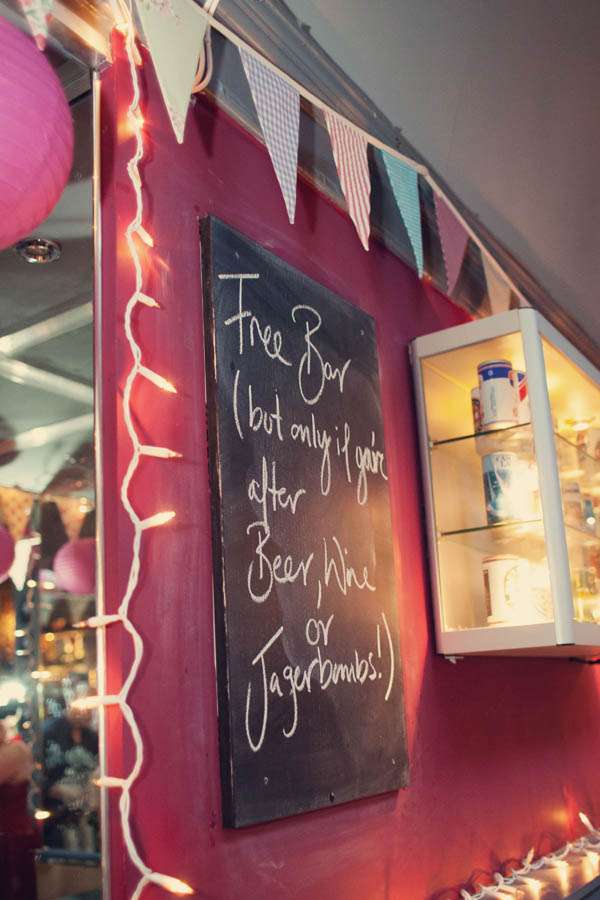 Free Bar
(but only if you're
after
Beer, Wine
or
Jagerbombs!)